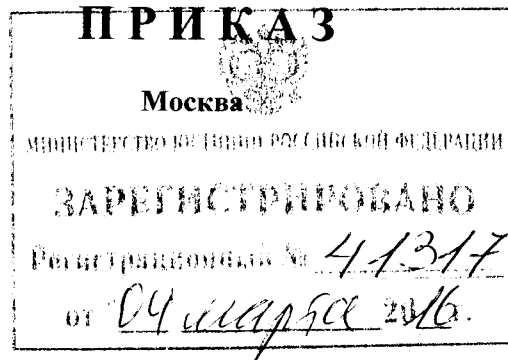 ПРИКАЗ
Москва
МИНИСТЕРСТВО ЮСТИЦИИ РОССИЙСКОЙ ФЕДЕРАЦИИ
ЗАРЕГИСТРИРОВАНО
Регистрационный № 41317
от "04 марта 2016.